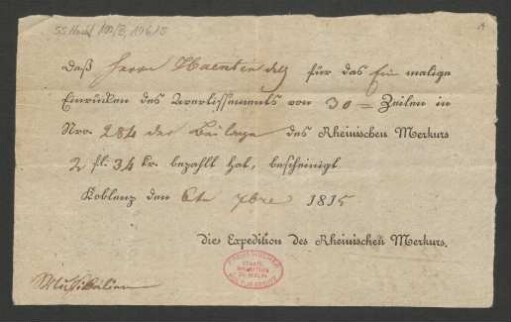 Daß Herr Haentendly für das Ein malige
Einrücken des Avertissements von 30 = Zeilen in
Nro. 284 der Beilage des Rheinischen Merkurs
2 fl: 34 kr. bezahlt hat, bescheinigt
Koblenz den 6te 7bre 1815
die Expedition des Rheinischen Merkurs.
Musikalien